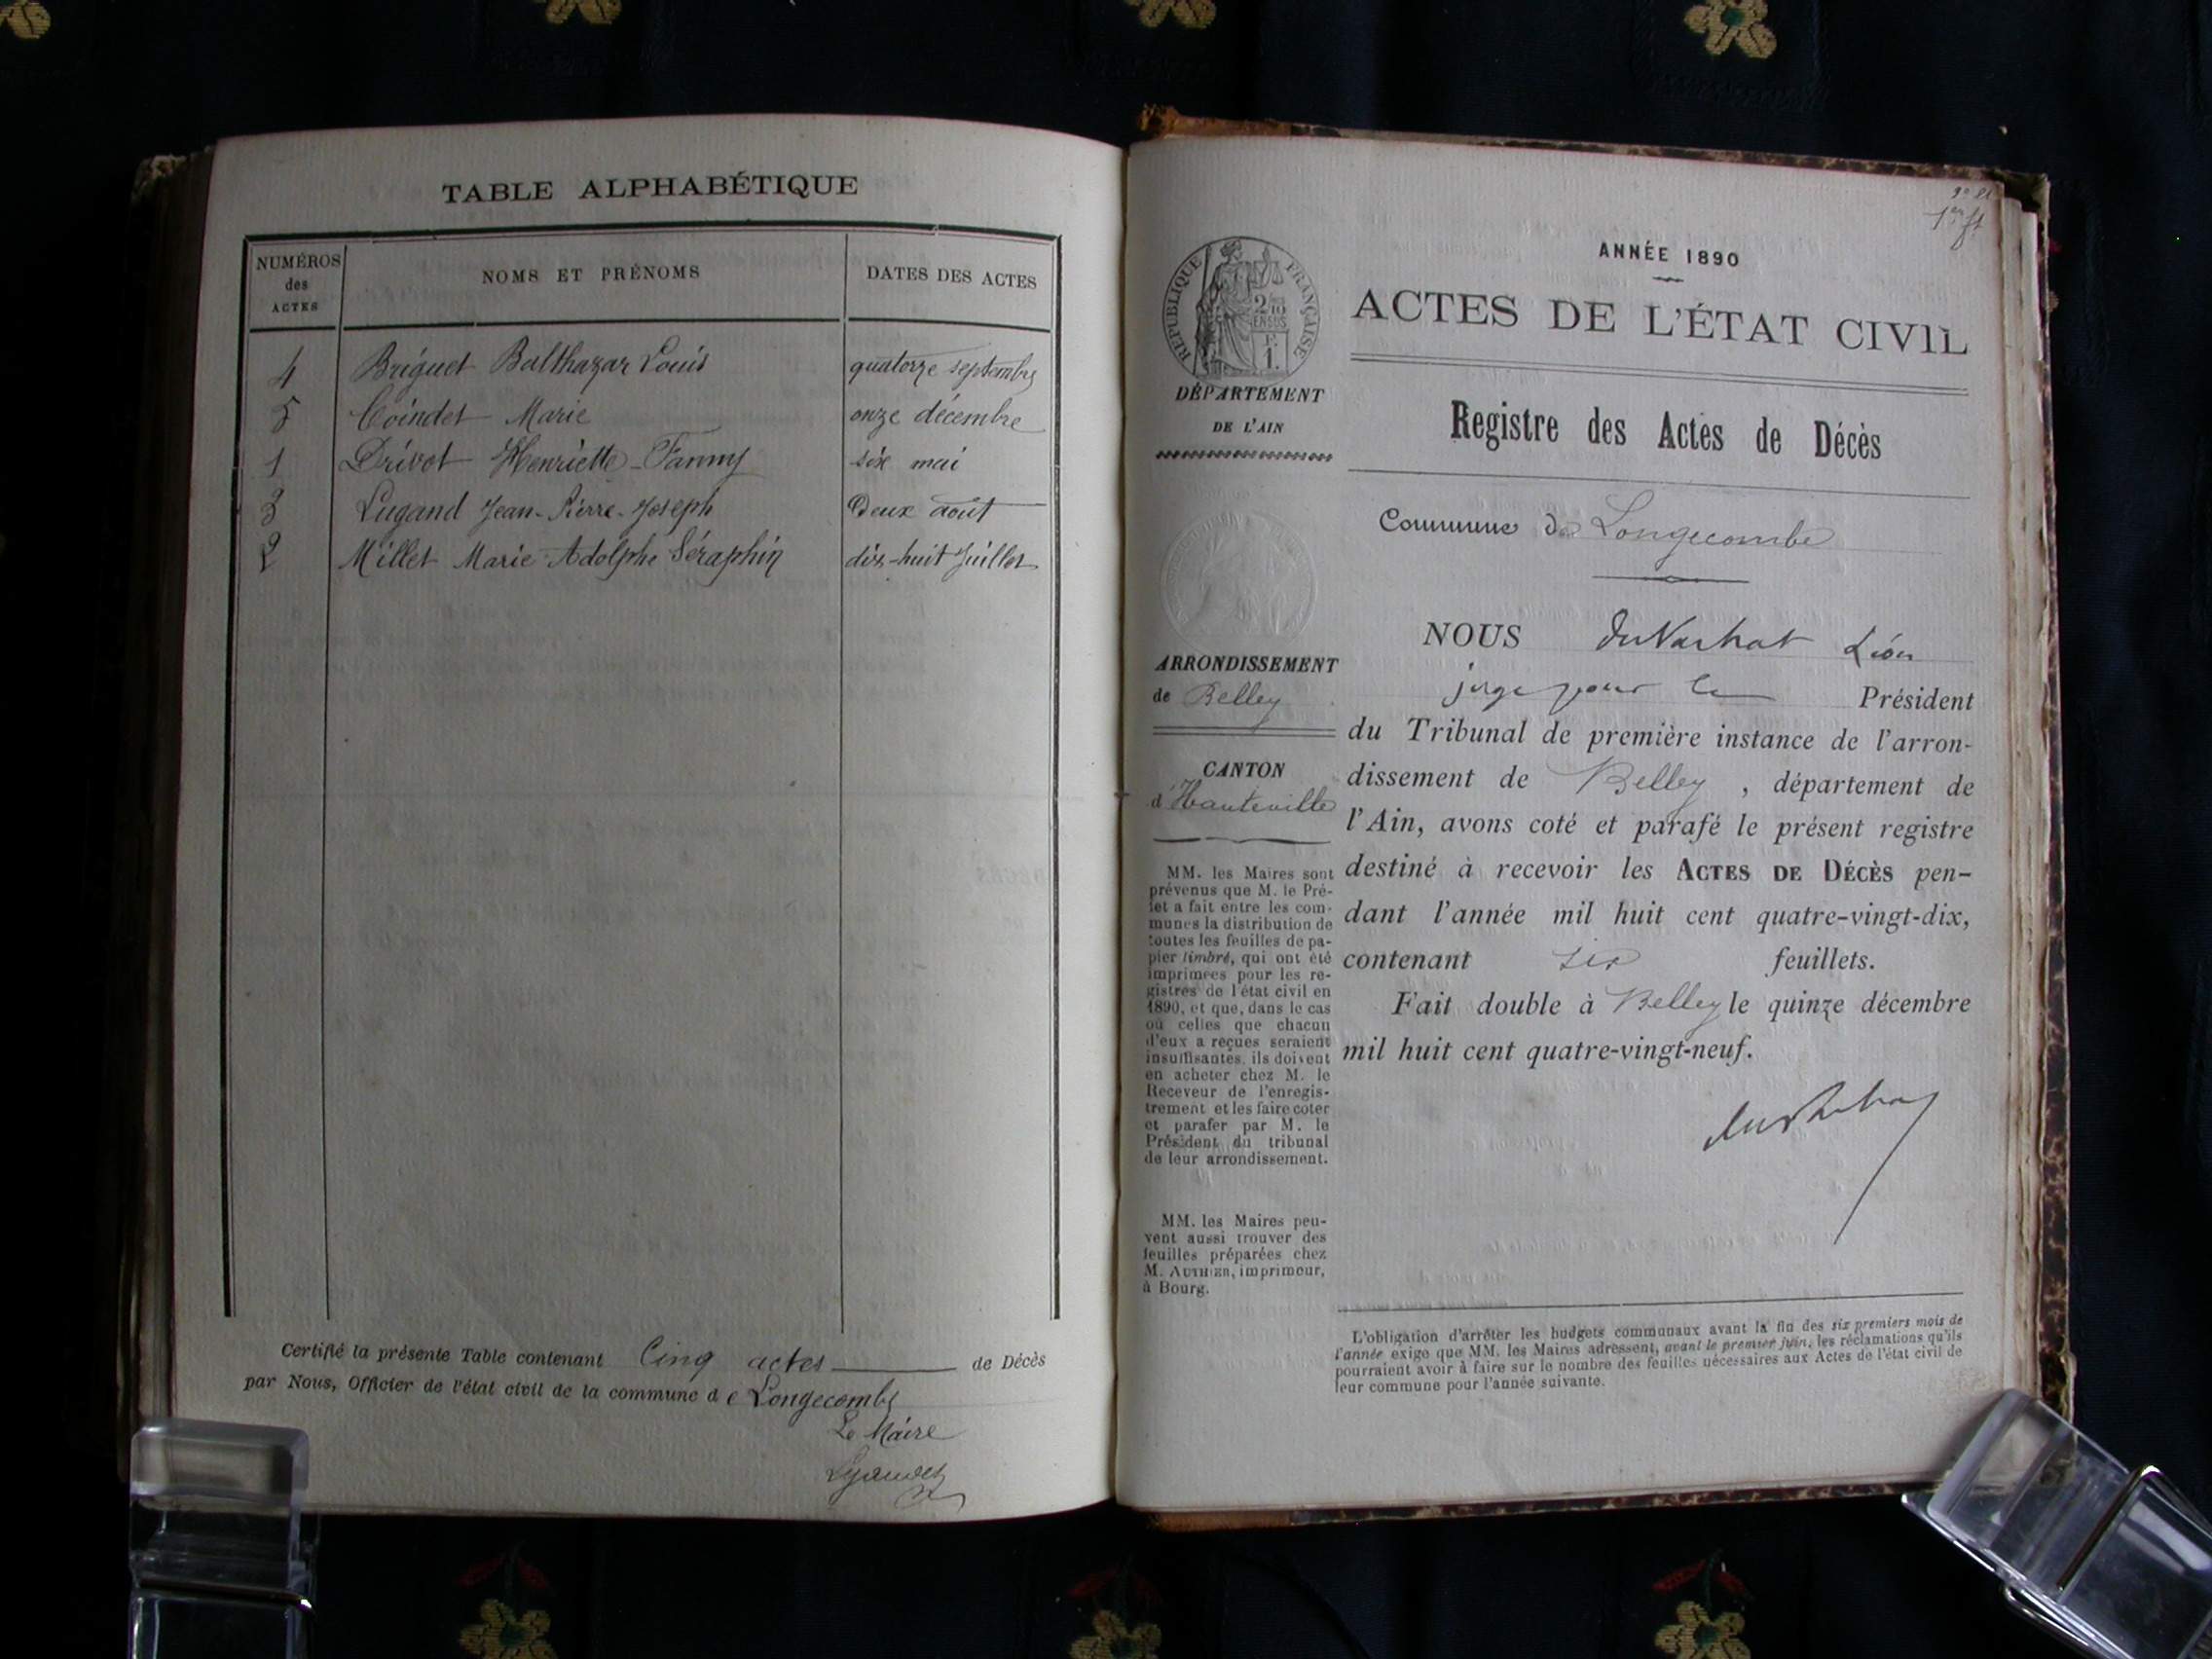 TABLE ALPHABÉTIQUE
NUMÉROS des ACTES
NOMS ET PRÉNOMS
DATES DES ACTES
4 Briguet Balthazar Louis quatorze septembre
5 Coindet Marie onze décembre
1 Drivot Henriette-Fanny six mai
3 Lugand Jean-Pierre-Joseph Deux août
2 Millet Marie-Adolphe Séraphin dix-huit Juillet
Certifié la présente Table contenant Cinq actes de Décès
par Nous, Officier de l'état civil de la commune d e Longecombe
Le Maire
1er ft
ANNÉE 1890
ACTES DE L'ÉTAT CIVIL
RÉPUBLIQUE FRANÇAISE
2/10 EN SUS
F. 1.
DÉPARTEMENT
DE L'AIN
Registre des Actes de Décès
Commune de Longecombe
ARRONDISSEMENT
de Belley
CANTON
d'Hauteville
MM. les Maires sont
prévenus que M. le Pré-
fet a fait entre les com-
munes la distribution de
toutes les feuilles de pa-
pier timbré, qui ont été
imprimées pour les re-
gistres de l'état civil en
1890, et que, dans le cas
où celles que chacun
d'eux a reçues seraient
insuffisantes, ils doivent
en acheter chez M. le
Receveur de l'enregis-
trement et les faire coter
et parafer par M. le
Président du tribunal
de leur arrondissement.
MM. les Maires peu-
vent aussi trouver des
feuilles préparées chez
M. AUTHIER, imprimeur,
à Bourg.
NOUS Léon
juge pour le Président
du Tribunal de première instance de l'arron-
dissement de Belley, département de
l'Ain, avons coté et parafé le présent registre
destiné à recevoir les ACTES DE DÉCÈS pen-
dant l'année mil huit cent quatre-vingt-dix,
contenant six feuillets.
Fait double à Belley le quinze décembre
mil huit cent quatre-vingt-neuf.
L'obligation d'arrêter les budgets communaux avant la fin des six premiers mois de
l'année exige que MM. les Maires adressent, avant le premier juin, les réclamations qu'ils
pourraient avoir à faire sur le nombre des feuilles nécessaires aux Actes de l'état civil de
leur commune pour l'année suivante.